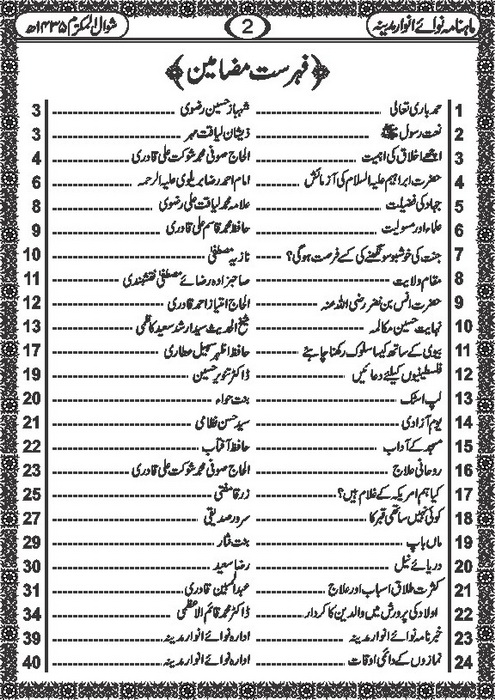 ماہنامہ نوائے انوار مدینہ 2 شوال المکرم ۱۴۳۵ھ
﴿فہرست مضامین﴾
1 حمد باری تعالی شہباز حسین رضوی 3
2 نعت رسول ﷺ ذیشان لیاقت مہر 3
3 اچھے اخلاق کی اہمیت الحاج صوفی محمد شوکت علی قادری 4
4 حضرت ابراہیم علیہ السلام کی آزمائش امام احمد رضا بریلوی علیہ الرحمہ 6
5 جہاد کی فضیلت علامہ محمد لیاقت علی رضوی 8
6 علماء اور مسولیت حافظ محمد قاسم علی قادری 9
7 جنت کی خوشبو سونگھنے کی کسے فرصت ہوگی؟ نازیہ مصطفیٰ 10
8 مقام ولایت صاحبزادہ رضائے مصطفیٰ نقشبندی 11
9 حضرت انس بن نضر رضی اللہ عنہ الحاج امتیاز احمد قادری 12
10 نہایت حسین مکالمہ شیخ الحدیث سید ارشد سعید کاظمی 13
11 بیوی کے ساتھ کیسا سلوک رکھنا چاہئے حافظ اظہر سہیل عطاری 17
12 فلسطینیوں کیلئے دعائیں ڈاکٹر تنویر حسین 19
13 لپ اسٹک بنت حواء 20
14 یوم آزادی سید حسن نظامی 21
15 مسجد کے آداب حافظ آفتاب 22
16 روحانی علاج الحاج صوفی محمد شوکت علی قادری 23
17 کیا ہم امریکہ کے غلام ہیں؟ زر قا مفتی 25
18 کوئی نہیں ساتھی قبر کا سرور صدیقی 27
19 ماں باپ بنت نثار 29
20 دریائے نیل رضا سعید 30
21 کثرت طلاق اسباب اور علاج عبدالمبین قادری 31
22 اولاد کی پرورش میں والدین کا کردار ڈاکٹر محمد قائم الاعظمی 34
23 خبر نامہ نوائے انوار مدینہ ادارہ نوائے انوار مدینہ 39
24 نمازوں کے دائمی اوقات ادارہ نوائے انوار مدینہ 40